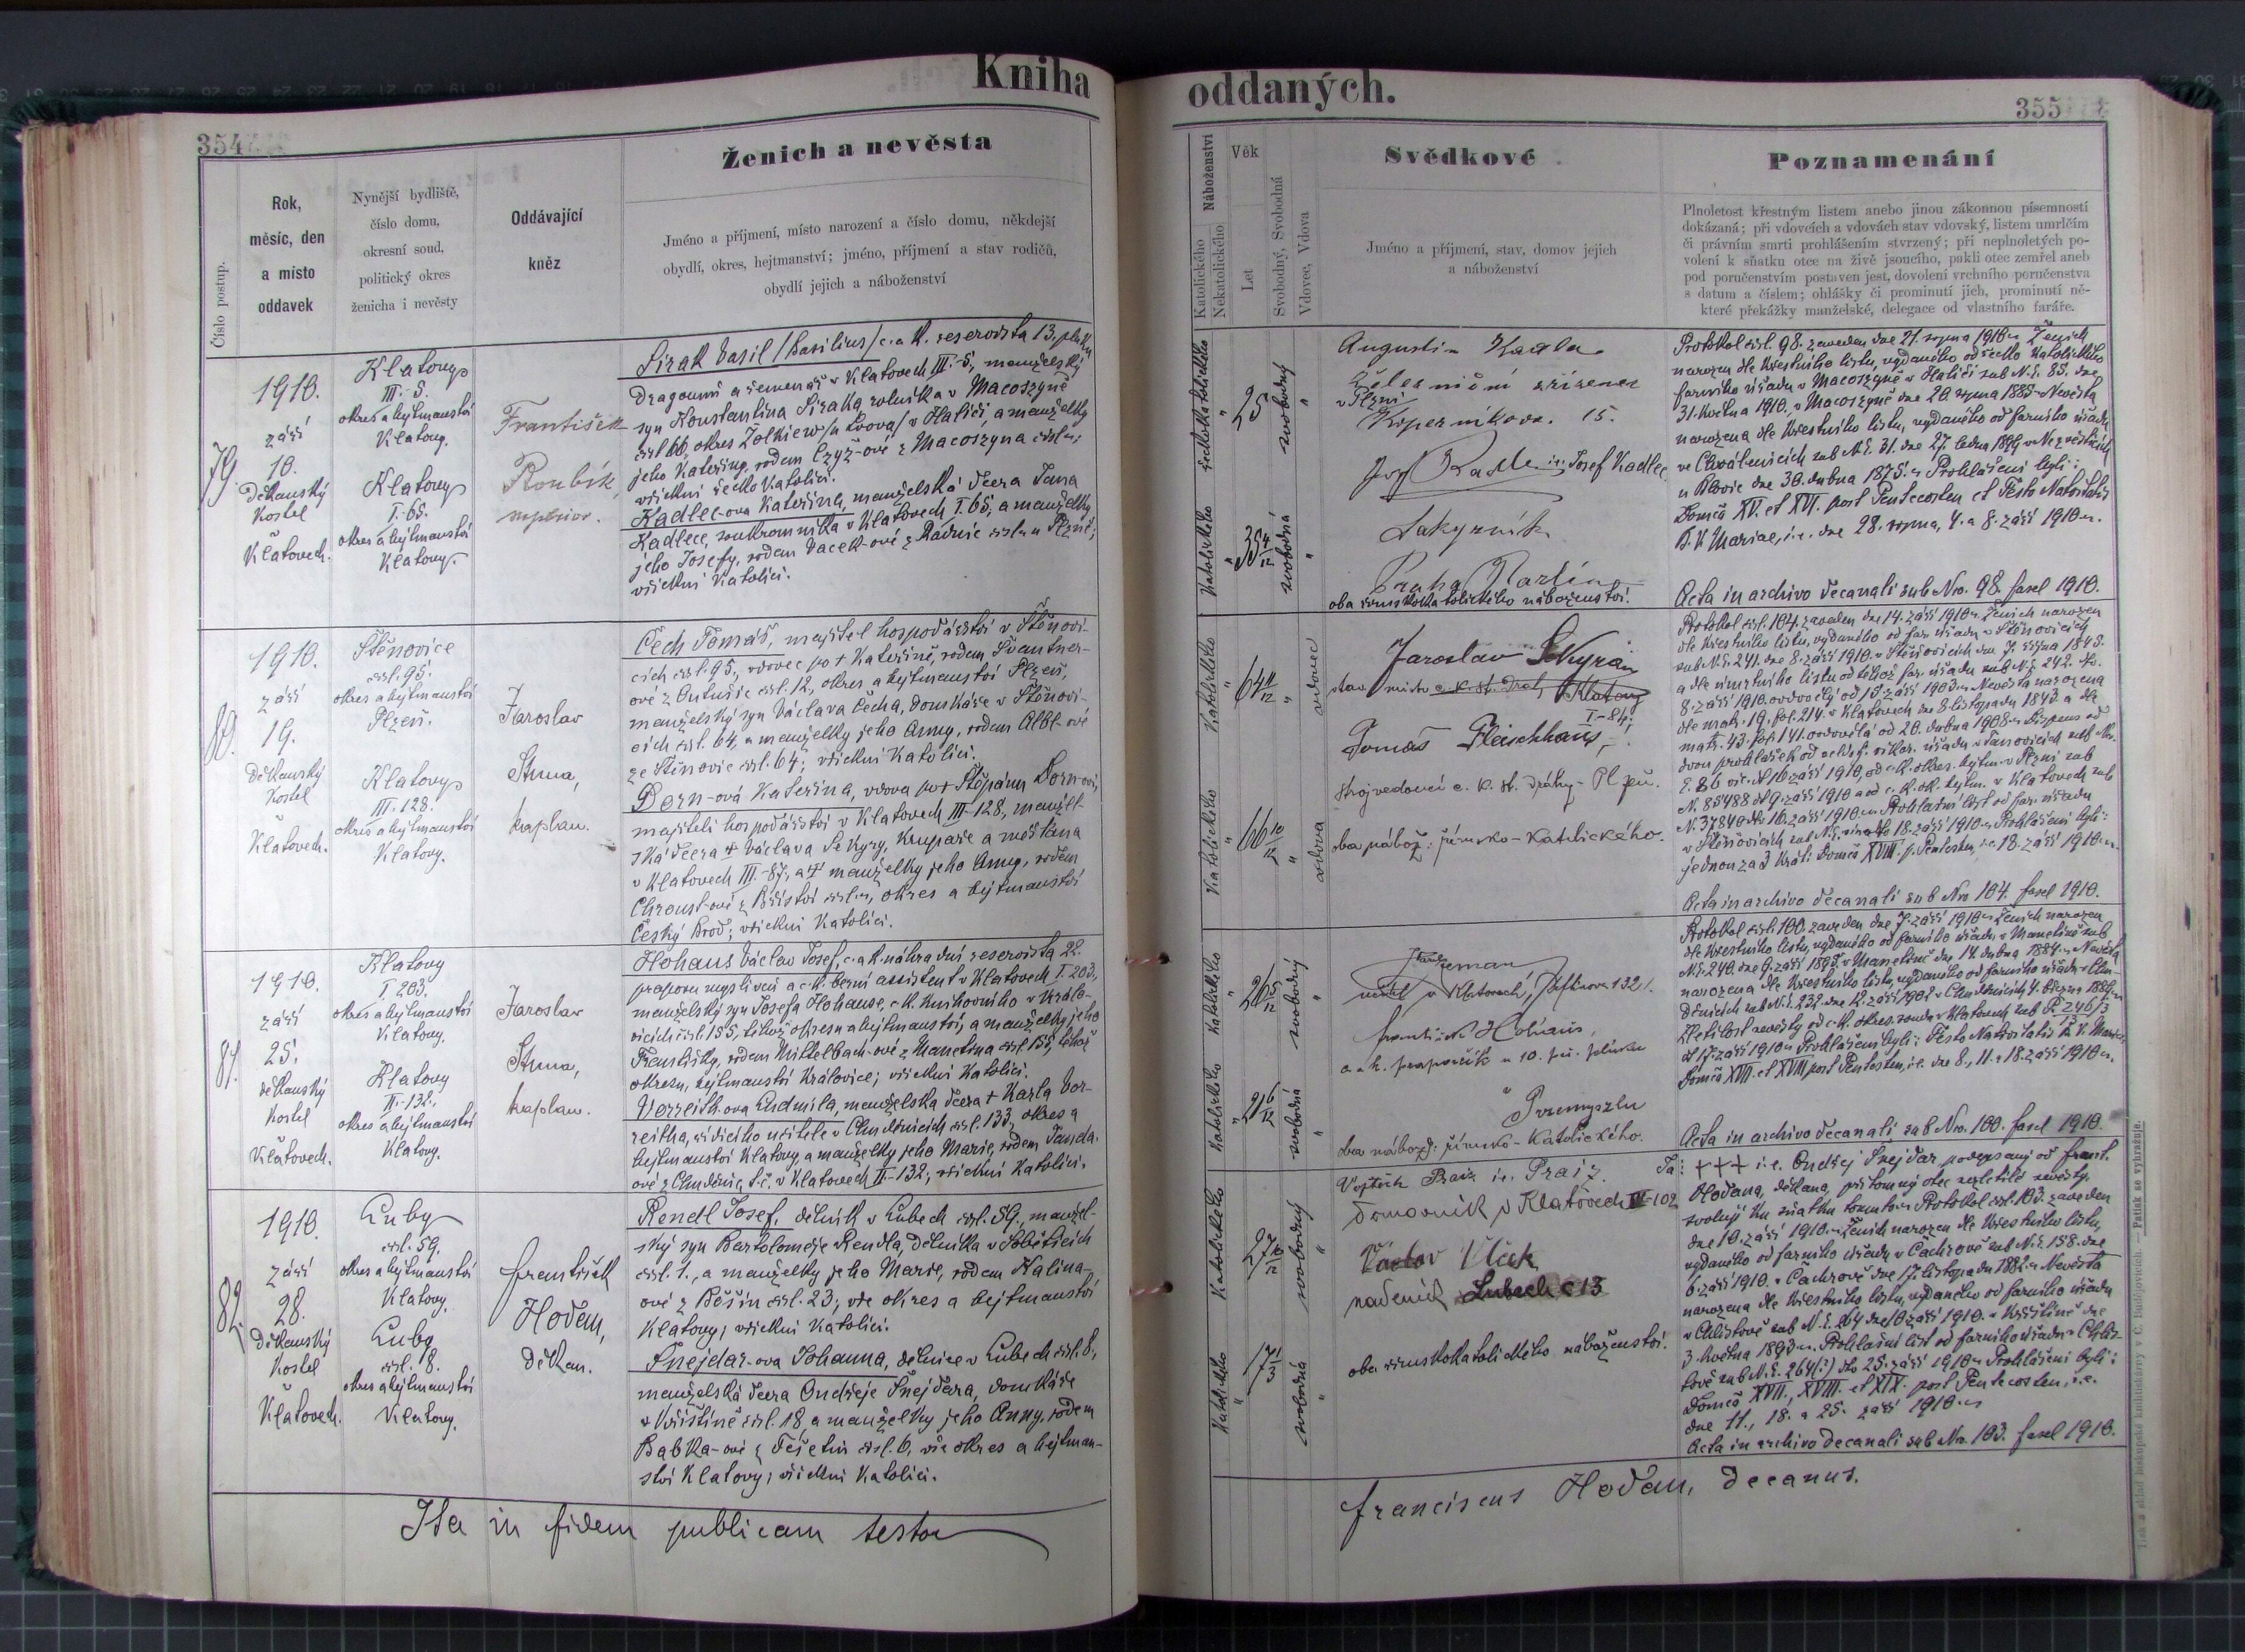 Kniha oddaných.
354
355
Číslo postup.
Rok,
měsíc, den
a místo
oddavek
Nynější bydliště,
číslo domu,
okresní soud,
politický okres
ženicha i nevěsty
Oddávající
kněz
Ženich a nevěsta
Jméno a příjmení, místo narození a číslo domu, někdejší
obydlí, okres, hejtmanství; jméno, příjmení a stav rodičů,
obydlí jejich a náboženství
Náboženství
Katolického
Nekatolického
Věk
Let
Svobodný, Svobodná
Vdovec, Vdova
Svědkové
Jméno a příjmení, stav, domov jejich
a náboženství
Poznamenání
Plnoletost křestným listem anebo jinou zákonnou písemností
dokázaná; při vdovcích a vdovách stav vdovský, listem umrlčím
či právním smrti prohlášením stvrzený; při neplnoletých po-
volení k sňatku otce na živě jsoucího, pakli otec zemřel aneb
pod poručenstvím postaven jest, dovolení vrchního poručenstva
s datum a číslem; ohlášky či prominutí jich, prominutí ně-
které překážky manželské, delegace od vlastního faráře.
79.
1910.
září
10.
Děkanský
kostel
Klatovech.
Klatovy
III.-5.
okres a hejtmanství
Klatovy.
Klatovy
I.-65.
okres a hejtmanství
Klatovy.
František
Roubík,
superior.
Sirak Vasil /Basilius/ c. a k. reservista 13. pluku
dragounů a řemenář v Klatovech III.-5, manželský
syn Konstantina Siraka, rolníka v Macoszyně
čisl 66, okres Žolkiew /u Lvova/ v Haliči, a manželky
jeho Kateřiny, rodem Czyž-ové z Macoszyna
všickni řeckokatolíci.
Kadlec-ova Kateřina, manželská dcera Jana
Kadlece, soukromníka v Klatovech I. 65, a manželky
jeho Josefy, rodem Vacek-ové z Radnic
všickni katolíci.
řeckokatolického
25
svobodný
katolického
35 4/12
svobodná
Augustin Kadlec
železniční zřízenec
v Plzni
Koperníkova. 15.
Josef Kadlec
Lakyrník
Praha Karlín
oba římskokatolického náboženství.
Protokol čisl. 98. zaveden dne 21. srpna 1910. Ženich
narozen dle křestního listu, vydaného od řecko katolického
farního úřadu v Macoszyně v Haliči sub N.E. 85. dne
31. května 1910, v Macoszyně dne 20. srpna 1885. Nevěsta
narozena dle křestního listu, vydaného od farního úřadu
ve Chválenicích sub N.E. 31. dne 27. ledna 1899 v Nezvěsticích
u Blovic dne 30. dubna 1875. Prohlášení byli:
Domčā XV. et XVI. post Pentecosten et Festo Nativitatis
B. V. Mariae, i.e. dne 28. srpna, 4. a 8. září 1910.
Acta in archivo decanali sub Nro. 98. fasel 1910.
80.
1910.
září
19.
Děkanský
kostel
Klatovech.
Štěnovice
čisl. 95.
okres a hejtmanství
Plzeň.
Klatovy
III. 128.
okres a hejtmanství
Klatovy.
Jaroslav
Stuna,
kaplan.
Čech Tomáš, majitel hospodářství v Štěnovi-
cích čisl. 95, vdovec po + Kateřině, rodem Švantner-
ové z Outušic čisl. 12, okres a hejtmanství Plzeň,
manželský syn Václava Čecha, domkáře v Štěnovi-
cích čisl. 64, a manželky jeho Anny, rodem Albl-ové
ze Štěnovic čisl. 64; všickni katolíci.
Dorn-ová Kateřina, vdova po + Štěpánu Dorn-ovi,
majiteli hospodářství v Klatovech III-128, manžel-
ská dcera + Václava Sekyry, krupaře a měšťana
v Klatovech III.-87, a + manželky jeho Anny, rodem
Chroust-ové z Bříství, okres a hejtmanství
Český Brod; všickni katolíci.
Katolického
64 11/12
vdovec
Katolického
66 10/12
vdova
Jaroslav Sekyra
Klatovy
I-84.
Tomáš Fleischhans,
strojvedoucí c. k. st. dráhy - Plzeň.
oba nábož: římsko-katolického.
Protokol čisl. 104. zaveden dne 14. září 1910. Ženich narozen
dle křestního listu, vydaného od far. úřadu v Štěnovicích
sub N.E. 241. dne 8. září 1910. v Štěnovicích dne 7. října 1845.
a dle úmrtního listu od téhož far. úřadu sub N.E. 242.
8. září 1910. ovdověly od 15. září 1903. Nevěsta narozena
dle matr. 19. fol. 214. v Klatovech dne 8. listopadu 1843. a dle
matr. 43. fol. 141. ovdověla od 20. dubna 1908. Dispens od
N. 85488 dto 9. září 1910 a od c. k. ok. hejtm. v Klatovech sub
N. 37840 dto 16. září 1910. Prohlašní list od far. úřadu
v Štěnovicích dto 18. září 1910. Prohlášeni byli:
jednou za 3 krát: Domčā XVIII. p. Pentecosten, i.e. 18. září 1910.
Acta in archivo decanali sub Nro 104. fasel 1910.
81.
1910.
září
25.
děkanský
kostel
Klatovech.
Klatovy
I. 203.
okres a hejtmanství
Klatovy.
Klatovy
II.-132.
okres a hejtmanství
Klatovy.
Jaroslav
Stuna,
kaplan.
Hohaus Václav Josef, c. a k. náhradní reservista 22.
praporu myslivců a c. k. berní assistent v Klatovech I. 203,
manželský syn Josefa Hohause, c. k. knihovního v Králo-
vicích čisl 155, téhož okresu a hejtmanství, a manželky jeho
Františky, rodem Mittelbach-ové z Manetína čisl 155, téhož
okresu, hejtmanství Královice; všickni katolíci.
Vorreith-ova Ludmila, manželská dcera + Karla Vor-
reitha, řídícího učitele v Chudenicích čisl. 133, okres a
hejtmanství Klatovy, a manželky jeho Marie, rodem Janda-
ové z Chudenic, t. č. v Klatovech II-132; všickni katolíci.
Katolického
26 5/12
svobodný
Katolického
21 6/12
svobodná
v Klatovech, 132/I.
František Hohaus,
c. a k. praporčík u 10. pěš. pluku
v Przemyszlu
oba nábož: římsko-katolického.
Protokol čisl. 100. zaveden dne 7. září 1910. Ženich narozen
dle křestního listu, vydaného od farního úřadu v Manetíně sub
N.E. 240. dne 9. září 1895. v Manetíně dne 14. dubna 1884. Nevěsta
narozena dle křestního listu, vydaného od farního úřadu v Chu-
denicích sub N.E. 232. dne 12. září 1902 v Chudenicích 4. března 1889.
Zletilost nevěsty od c. k. okres. soudu v Klatovech sub P. 246/3
dt 17. září 1910. Prohlášeni byli: Festo Nativitatis B. V. Mariae,
Domčā XVII. et XVIII. post Pentecosten, i.e. dne 8., 11. a 18. září 1910.
Acta in archivo decanali, sub Nro. 100. fasel 1910.
82.
1910.
září
28.
Děkanský
kostel
Klatovech.
Luby
čisl. 59.
okres a hejtmanství
Klatovy.
Luby
čisl. 18.
okres a hejtmanství
Klatovy.
František
Hoďan,
děkan.
Rendl Josef, dělník v Lubech čisl. 59., manžel-
ský syn Bartoloměje Rendla, dělníka v Soběticích
čisl. 1., a manželky jeho Marie, rodem Kalina-
ové z Běšin čisl. 23; vše okres a hejtmanství
Klatovy; všickni katolíci.
Šnejdar-ova Johanna, dělnice v Lubech čisl. 8,
manželská dcera Ondřeje Šnejdara, domkáře
v Křištíně čisl. 18, a manželky jeho Anny, rodem
Babka-ové z Těšetin čisl. 6, vše okres a hejtman-
ství Klatovy; všickni katolíci.
Katolického
27 10/12
svobodný
Katolického
17 1/3
svobodná
Vojtěch Praiz i.e. Praiz
domovník v Klatovech III-102
Václav Vlček
nádeník Lubech č 13
oba římskokatolického náboženství.
Já: +++ i.e. Ondřej Šnejdar podepsaný od Frant.
Hoďana, děkana, přítomný otec nezletilé nevěsty,
svoluji ku sňatku tomuto. Protokol čisl. 103. zaveden
dne 10. září 1910. Ženich narozen dle křestního listu,
vydaného od farního úřadu v Čachrově sub N.E. 158. dne
6. září 1910. v Čachrově dne 17. listopadu 1882. Nevěsta
narozena dle křestního listu, vydaného od farního úřadu
v Chlistově sub N.E. 264 dne 10 září 1910. v Křištíně dne
3. května 1893. Prohlašní list od farního úřadu v Chlis-
tově sub N.E. 264(i) dto 25. září 1910. Prohlášeni byli:
Domčā XVII., XVIII. et XIX. post Pentecosten, i.e.
dne 11., 18. a 25. září 1910.
Acta in archivo decanali sub Nro. 103. fasel 1910.
Ita in fidem publicam testor
Franciscus Hoďan, decanus.
Tisk a sklad biskupské knihtiskárny v Č. Budějovicích. — Patisk se vyhražuje.